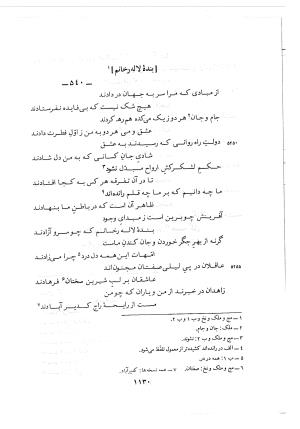 [بندهٔ لاله رخانم]¹
ـ ۵۴۰ ـ
از مبادی که مرا سر به جهان در دادند
هیچ شک نیست که بی‌فایده نفرستادند
جام و جان² هر دو ز یک میکده هم رهکردند
عشق و می هر دو به من ز اوّل فطرت دادند
۵۲۵۰ دولت راه روانی که رسیدند به عشق
شادی جان کسانی که به من دل شادند
حکم لشکرکش ارواح مبدّل نشود³
تا در آن تفرقه هر کس به کجا افتادند
ما چه دانیم که بر ما چه قلم رانده‌اند⁴
ظاهر آن است که در باطن ما بنهادند
آفرینش چو برین است ز مبدای وجود
بندهٔ لاله رخانم که چو سرو آزادند
گر نه از بهر جگر خوردن و جان کندن ماست
امّهات این همه دل درد⁵ چرا می‌زادند
۵۲۵۵ عاقلان در پی لیلی صفتان مجنون‌اند
عاشقان بر لب شیرین سخنان⁶ فرهادند
زاهدان در خبرند از من و یاران که چو من
مست از رایحهٔ راح کدیر آبادند⁷
۱ ـ مج و ملک و نخ و ب ۱ و ب ۲.
۲ ـ ملک: جان و جام.
۳ ـ مج و ملک و نخ و ب ۲: نشوند.
۴ ـ الف در رانده‌اند کشیده‌تر از معمول تلفظ می‌شود.
۵ ـ ب ۱: همه در ص.
۶ ـ مج و ملک و نخ: صفتاند.
۷ ـ همه نسخه‌ها: کبیرآباد.
۱۱۳۰